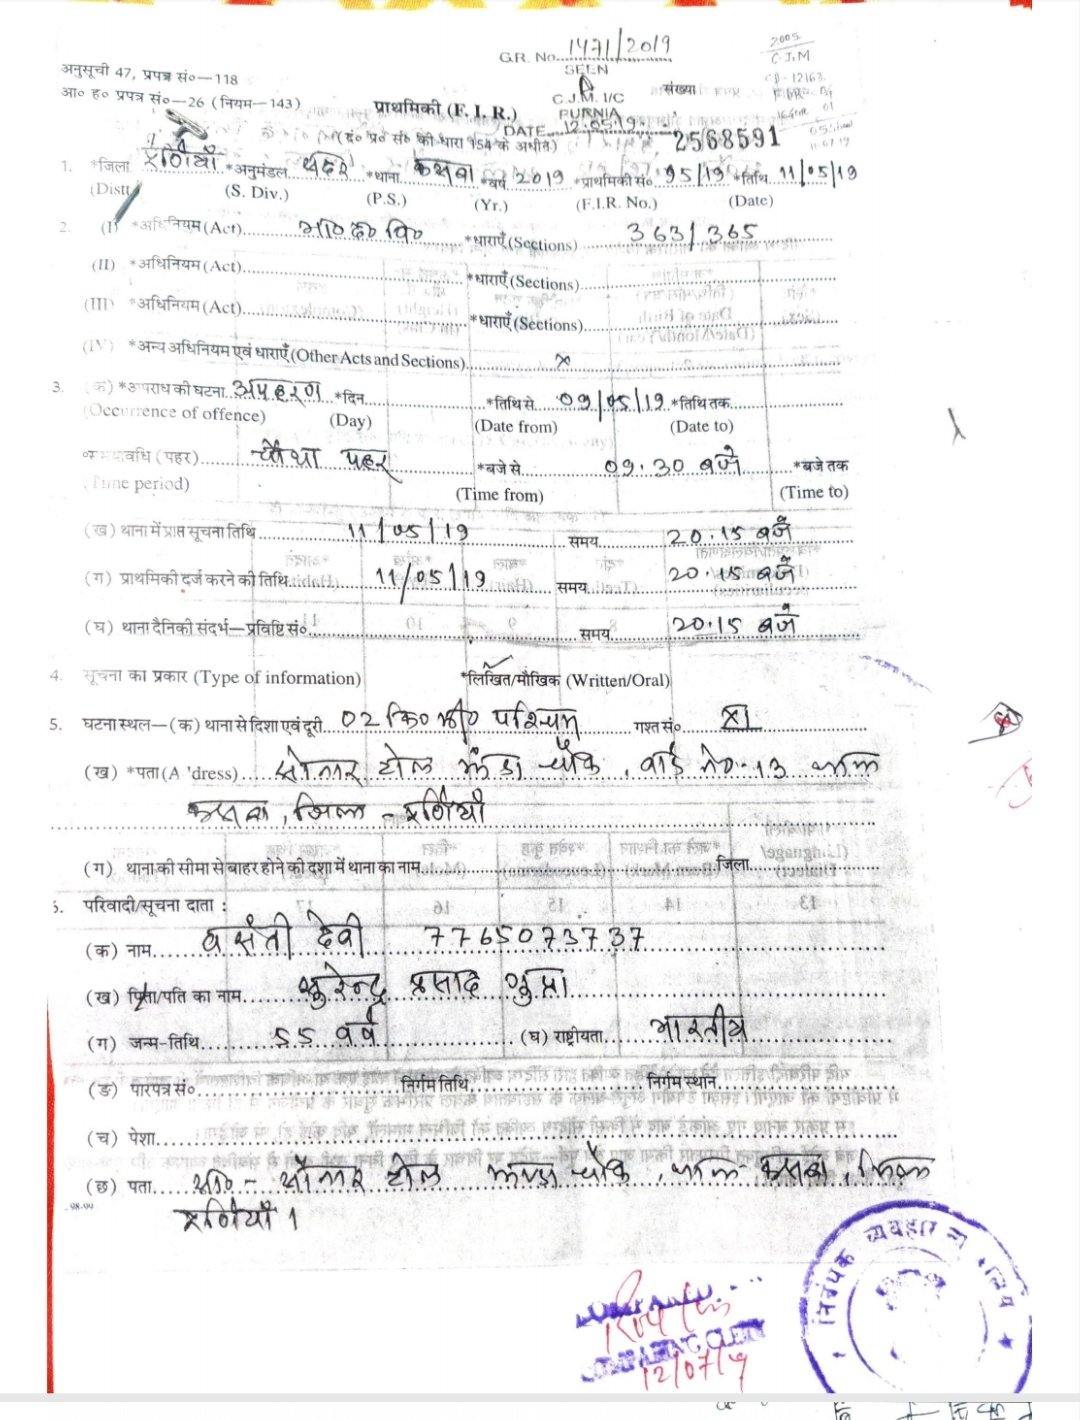 G.R. No. 1471/2019
2005
C.J.M
SEEN
अनुसूची 47, प्रपत्र सं०—118
C.J.M. I/C
संख्या
आ० ह० प्रपत्र सं०—26 (नियम—143)
प्राथमिकी (F. I. R.)
PURNIA
DATE 12.05.19
(द० प्र० सं० की धारा 154 के अधीन)
2568591
1. *जिला पूर्णियाँ *अनुमंडल सदर *थाना कसबा *वर्ष 2019 *प्राथमिकी सं० 95/19 *तिथि 11/05/19
(Distt (S. Div.) (P.S.) (Yr.) (F.I.R. No.) (Date)
2. (I) *अधिनियम (Act) भा० द० वि० *धाराएँ (Sections) 363/365
(II) *अधिनियम (Act) *धाराएँ (Sections)
(III) *अधिनियम (Act) *धाराएँ (Sections)
(IV) *अन्य अधिनियम एवं धाराएँ (Other Acts and Sections) x
3. (क) *अपराध की घटना अपहरण *दिन *तिथि से 09/05/19 *तिथि तक
(Occurrence of offence) (Day) (Date from) (Date to)
*समयावधि (पहर) चौथा पहर *बजे से 09.30 बजे *बजे तक
(Time period) (Time from) (Time to)
(ख) थाना में प्राप्त सूचना तिथि 11/05/19 समय 20.15 बजे
(ग) प्राथमिकी दर्ज करने की तिथि 11/05/19 समय 20.15 बजे
(घ) थाना दैनिकी संदर्भ—प्रविष्टि सं० समय 20.15 बजे
4. सूचना का प्रकार (Type of information) *लिखित/मौखिक (Written/Oral)
5. घटना स्थल—(क) थाना से दिशा एवं दूरी 02 कि० मी० पश्चिम गश्त सं० XI
(ख) *पता (A 'dress) सोनार टोला झंडा चौक, वार्ड नं०-13 थाना
कसबा, जिला - पूर्णियाँ
(ग) थाना की सीमा से बाहर होने की दशा में थाना का नाम जिला
6. परिवादी/सूचना दाता :
(क) नाम बसंती देवी 7765073737
(ख) पिता/पति का नाम सुरेन्द्र प्रसाद गुप्ता
(ग) जन्म-तिथि 55 वर्ष (घ) राष्ट्रीयता भारतीय
(ङ) पारपत्र सं० निर्गम तिथि निर्गम स्थान
(च) पेशा
(छ) पता सा० - सोनार टोला झण्डा चौक, थाना- कसबा, जिला
पूर्णियाँ।
COMPARING CLERK
12/07/19
व्यवहार न्यायालय